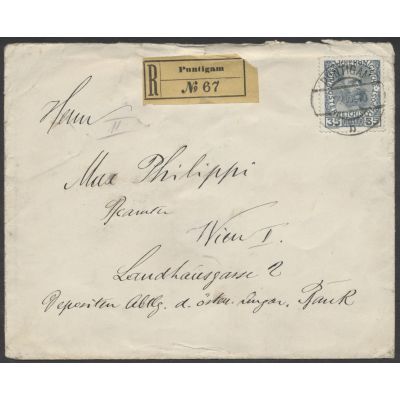 Puntigam
R
№ 67
PUNTIGAM
35 35
b
Herrn
Max Philippi
Beamter
Wien I.
Landhausgasse 2
Depositen Abtlg. d. österr. ungar. Bank